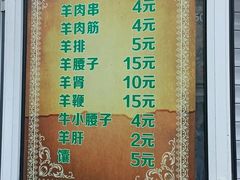 羊肉串 4元
羊肉筋 4元
羊排 5元
羊腰子 15元
羊肾 10元
羊鞭 15元
牛小腰子 4元
羊肝 2元
馕 5元